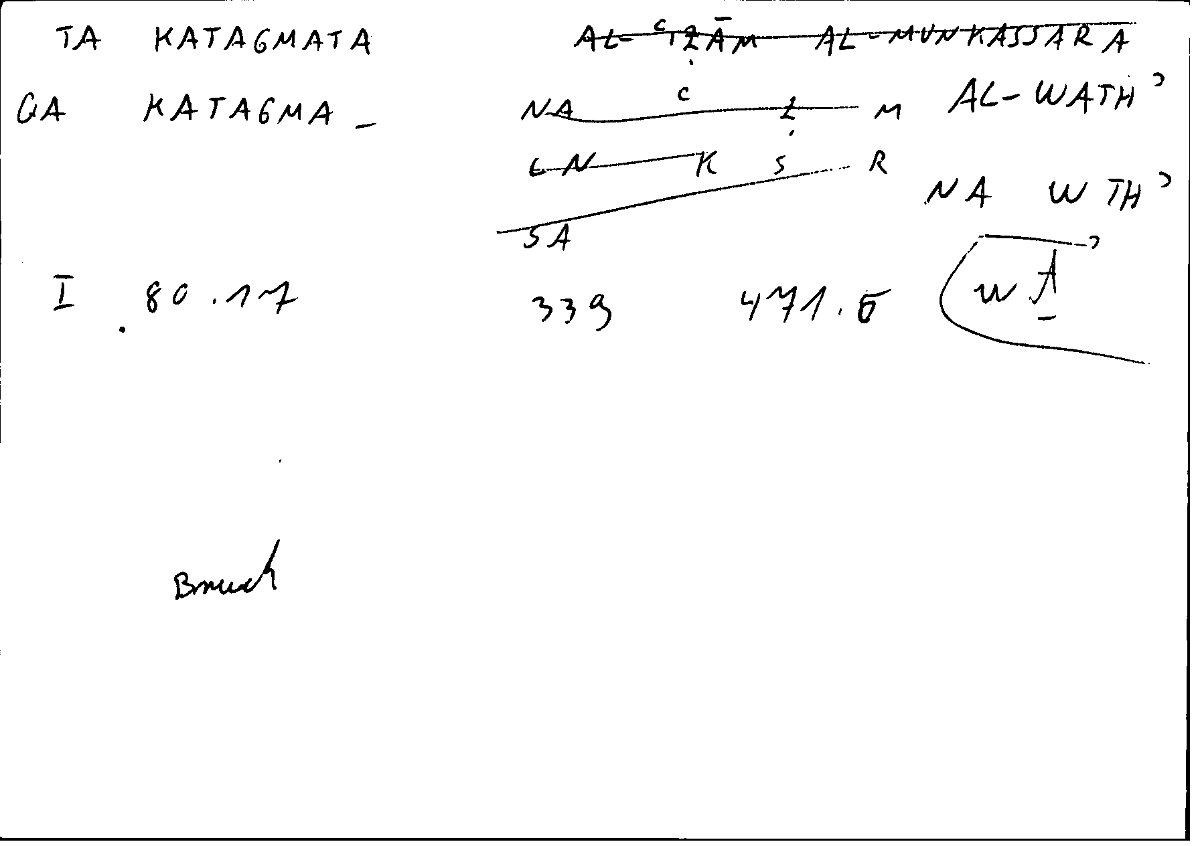 TA KATAGMATA AL-ʿIẒĀM AL-MUNKASSARA
GA KATAGMA_ NA ʿ Ẓ M AL-WATHʾ
EN K S R NA W THʾ
SA
I 80.17 339 471.6 WAʾ
Bruch